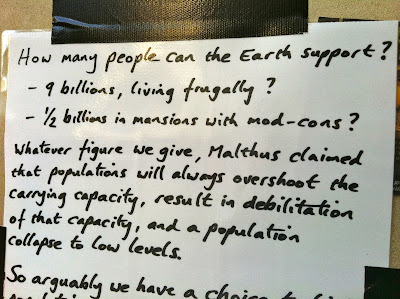 How many people can the Earth support?
- 9 billions, living frugally?
- ½ billions in mansions with mod-cons?
Whatever figure we give, Malthus claimed
that populations will always overshoot the
carrying capacity, result in debilitation
of that capacity, and a population
collapse to low levels.
So arguably we have a choice to